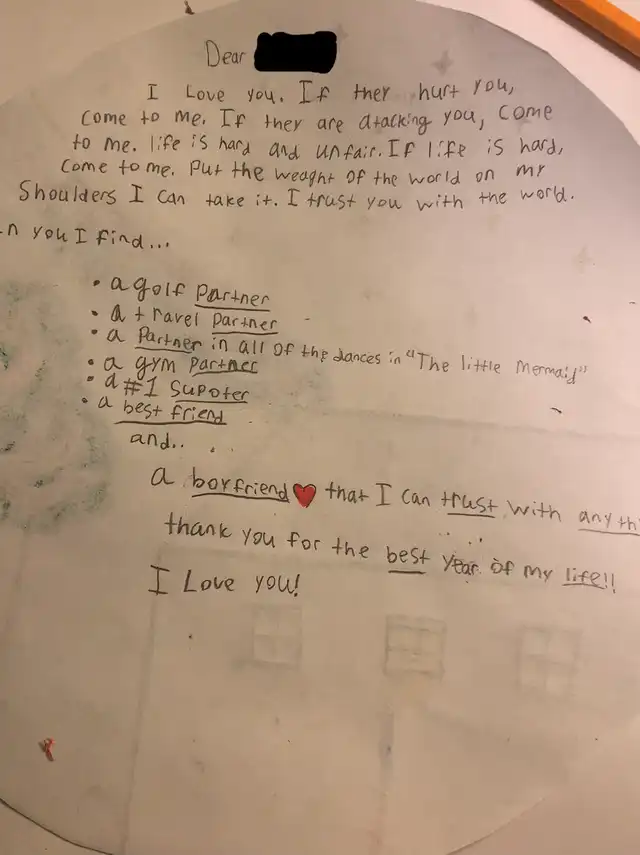 Dear
I Love you. If they hurt you,
come to me. If they are atacking you, come
to me. life is hard and unfair. If life is hard,
come to me. Put the weaght of the world on my
Shoulders I can take it. I trust you with the world.
n you I find...
• a golf partner
• a travel partner
• a Partner in all of the dances in "The little Mermaid"
• a gym partner
• a #1 Supoter
• a best friend
and..
a boyfriend ❤ that I can trust with any th
thank you for the best year of my life!!
I Love you!